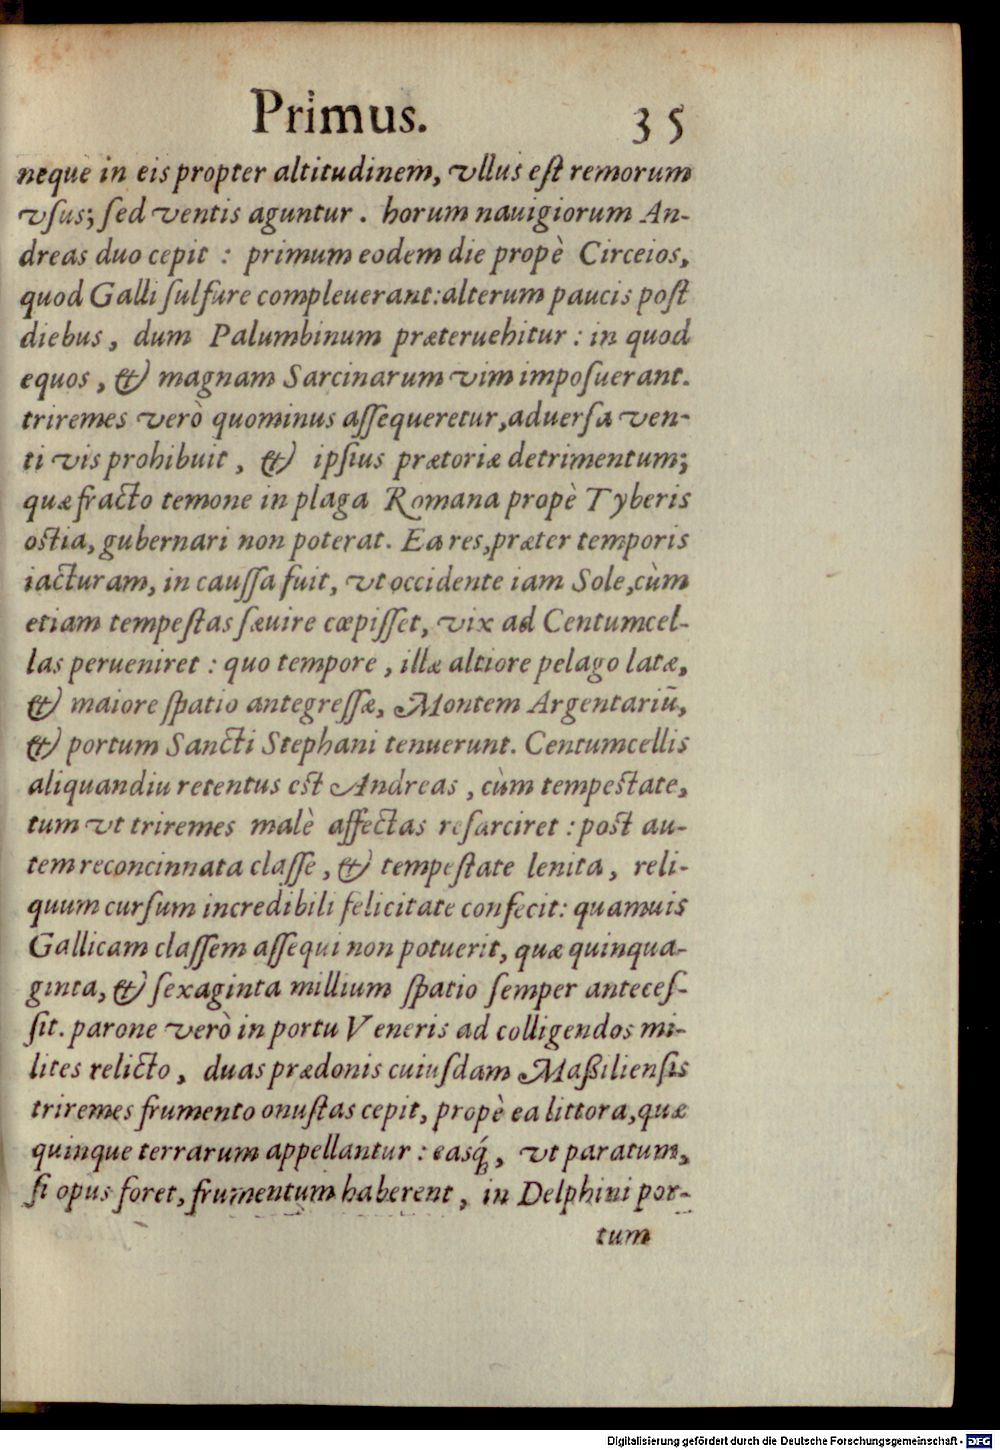 Primus. 35
neque in eis propter altitudinem, vllus est remorum
vsus; sed ventis aguntur. horum nauigiorum An-
dreas duo cepit : primum eodem die propè Circeios,
quod Galli sulfure compleuerant: alterum paucis post
diebus, dum Palumbinum præteruehitur : in quod
equos, & magnam Sarcinarum vim imposuerant.
triremes verò quominus assequeretur, aduersa ven-
ti vis prohibuit, & ipsius prætoriæ detrimentum;
quæ fracto temone in plaga Romana propè Tyberis
ostia, gubernari non poterat. Ea res, præter temporis
iacturam, in caussa fuit, vt occidente iam Sole, cùm
etiam tempestas sæuire cœpisset, vix ad Centumcel-
las perueniret : quo tempore, illæ altiore pelago latæ,
& maiore spatio antegressæ, Montem Argentariũ,
& portum Sancti Stephani tenuerunt. Centumcellis
aliquandiu retentus est Andreas, cùm tempestate,
tum vt triremes malè affectas resarciret : post au-
tem reconcinnata classe, & tempestate lenita, reli-
quum cursum incredibili felicitate confecit: quamuis
Gallicam classem assequi non potuerit, quæ quinqua-
ginta, & sexaginta millium spatio semper anteces-
sit. parone verò in portu Veneris ad colligendos mi-
lites relicto, duas prædonis cuiusdam Maßiliensis
triremes frumento onustas cepit, propè ea littora, quæ
quinque terrarum appellantur : easq́;, vt paratum,
si opus foret, frumentum haberent, in Delphini por-
tum
Digitalisierung gefördert durch die Deutsche Forschungsgemeinschaft - DFG